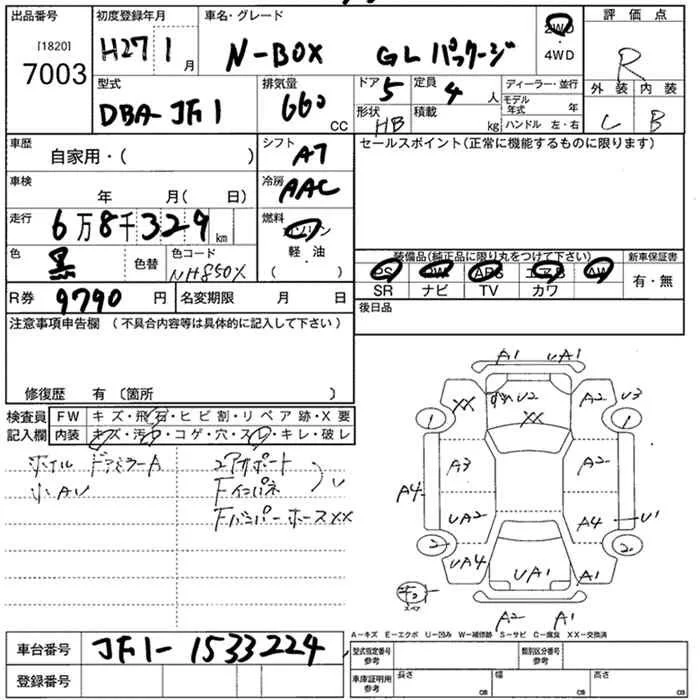 出品番号 初度登録年月 車名・グレード 評価点
[1820]
7003 H27 1月 N-BOX GLパッケージ 2WD・4WD R
型式 排気量 ドア 5 定員 4人 ディーラー・並行 外装 内装
DBA-JF1 660 CC 形状 HB 積載 kg モデル年式 年 ハンドル 左・右 C B
車歴 自家用・( ) シフト AT セールスポイント(正常に機能するものに限ります)
車検 年 月( 日) 冷房 AAC
走行 6万8千329km 燃料 ガソリン
軽・油
( ・ )
色 黒 色替 色コード NH850X
装備品(純正品に限り丸をつけて下さい) 新車保証書
PS PW ABS エアB AW 有・無
SR ナビ TV カワ
R券 9790円 名変期限 月 日 後日品
注意事項申告欄 (不具合内容等は具体的に記入して下さい)
修復歴 有(箇所 )
検査員 FW キズ・飛石・ヒビ割・リペア跡・X要
記入欄 内装 キズ・汚れ・コゲ・穴・スレ・キレ・破レ
ホイル ドアミラーA
小AU
コアサポート
Fインパネ
FバンパーホースXX
A1 UA1
XX U2 XX A2 U3
1 1
A3 A2
A4 UA2 A4 U1
2 2
UA4 UA1 A1
スペア
A2 A1
A-キズ E-エクボ U-凹み W-補修跡 S-サビ C-腐食 XX-交換済
車台番号 JF1-1533224
登録番号
型式指定番号 参考 類別区分番号 参考
車庫証明用 参考 長さ cm 幅 cm 高さ cm